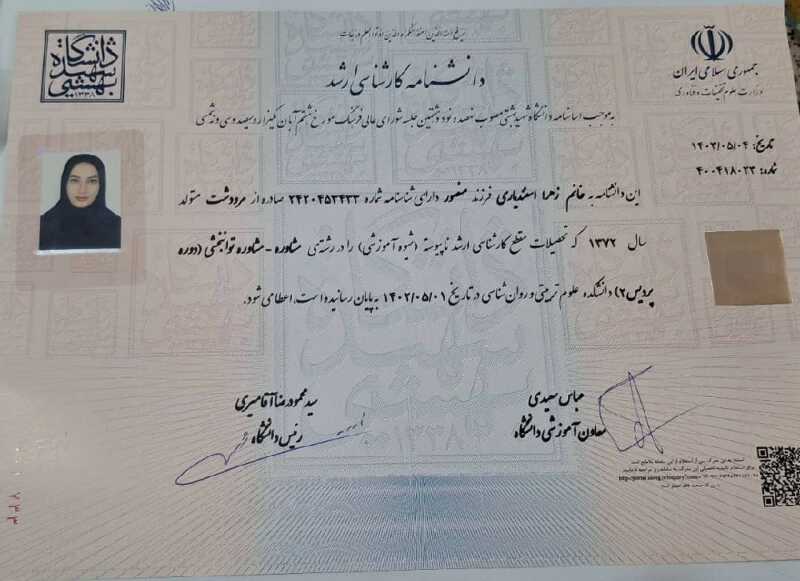 دانشگاه
شهید
بهشتی
۱۳۳۸
جمهوری اسلامی ایران
وزارت علوم تحقیقات و فناوری
دانشنامه کارشناسی ارشد
به موجب اساسنامه دانشگاه شهید بهشتی مصوب نهصد و نود و ششمین جلسه شورای عالی فرهنگ مورخ هشتم آبان یکهزار و سیصد و سی و نه شمسی
تاریخ: ۱۴۰۳/۰۵/۰۴
شماره: ۴۰۰۴۱۸۰۲۳
این دانشنامه به خانم زهرا اسفندیاری فرزند منصور دارای شناسنامه شماره ۲۴۲۰۴۵۳۴۳۳ صادره از مرودشت متولد
سال ۱۳۷۲ که تحصیلات مقطع کارشناسی ارشد ناپیوسته (شیوه آموزشی) را در رشته‌ی مشاوره - مشاوره توانبخشی (دوره
پردیس۲) دانشکده علوم تربیتی و روان شناسی در تاریخ ۱۴۰۲/۰۵/۰۱ به پایان رسانیده است، اعطا می شود.
عباس سعیدی
معاون آموزشی دانشگاه
سید محمودرضا آقامیری
رئیس دانشگاه